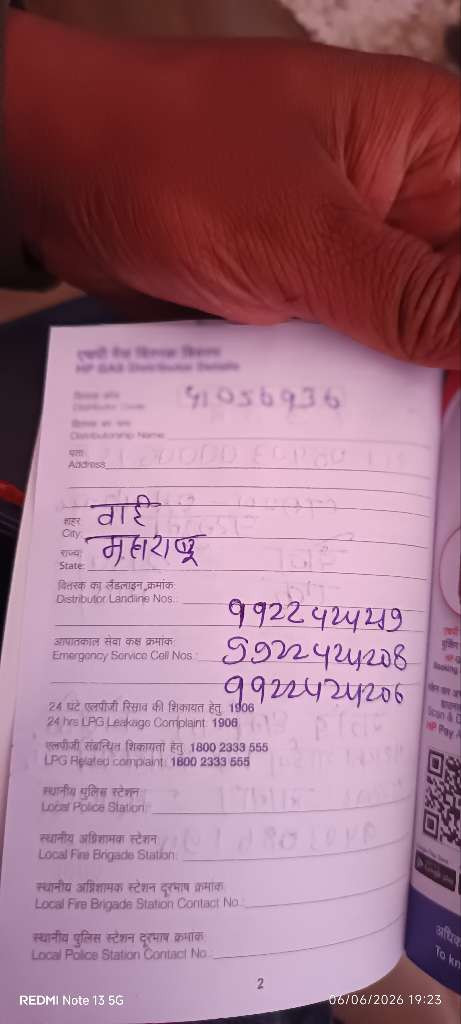 एचपी गैस वितरक विवरण
HP GAS Distributor Details
वितरक कोड
Distributor Code: 41056936
वितरक का नाम
Distributorship Name
पता:
Address
शहर:
City: वाई
राज्य:
State: महाराष्ट्र
वितरक का लैंडलाइन क्रमांक
Distributor Landline Nos.:
आपातकाल सेवा कक्ष क्रमांक
Emergency Service Cell Nos.:
24 घंटे एलपीजी रिसाव की शिकायत हेतु: 1906
24 hrs LPG Leakage Complaint: 1906
एलपीजी संबन्धित शिकायतों हेतु: 1800 2333 555
LPG Related complaint: 1800 2333 555
स्थानीय पुलिस स्टेशन
Local Police Station:
स्थानीय अग्निशामक स्टेशन
Local Fire Brigade Station:
स्थानीय अग्निशामक स्टेशन दूरभाष क्रमांक:
Local Fire Brigade Station Contact No.:
स्थानीय पुलिस स्टेशन दूरभाष क्रमांक:
Local Police Station Contact No.:
2
HP Pay
Google play
To kn
REDMI Note 13 5G
06/06/2026 19:23